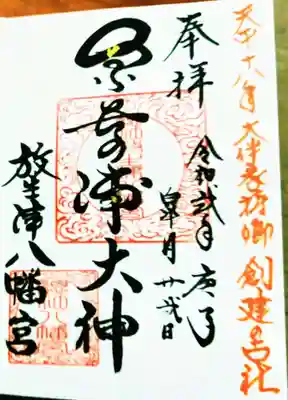 天平十八年 大伴家持卿 創建の古社
奉拝
令和弐年 庚子
皐月 廿弐日
奈呉浦大神
放生津八幡宮